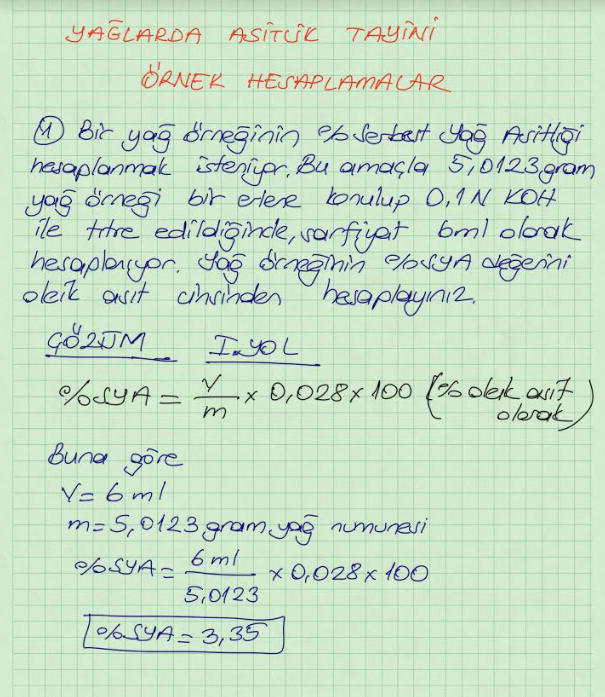 YAĞLARDA ASİTLİK TAYİNİ
ÖRNEK HESAPLAMALAR
1 Bir yağ örneğinin %Serbest Yağ Asitliği
hesaplanmak isteniyor. Bu amaçla 5,0123 gram
yağ örneği bir erlene konulup 0,1 N KOH
ile titre edildiğinde, sarfiyat 6ml olarak
hesaplanıyor. Yağ örneğinin %SYA değerini
oleik asit cinsinden hesaplayınız.
ÇÖZÜM I.YOL
%SYA = V/m × 0,028 × 100 (%oleik asit olarak)
Buna göre
V = 6 ml
m = 5,0123 gram yağ numunesi
%SYA = 6 ml/5,0123 × 0,028 × 100
%SYA = 3,35